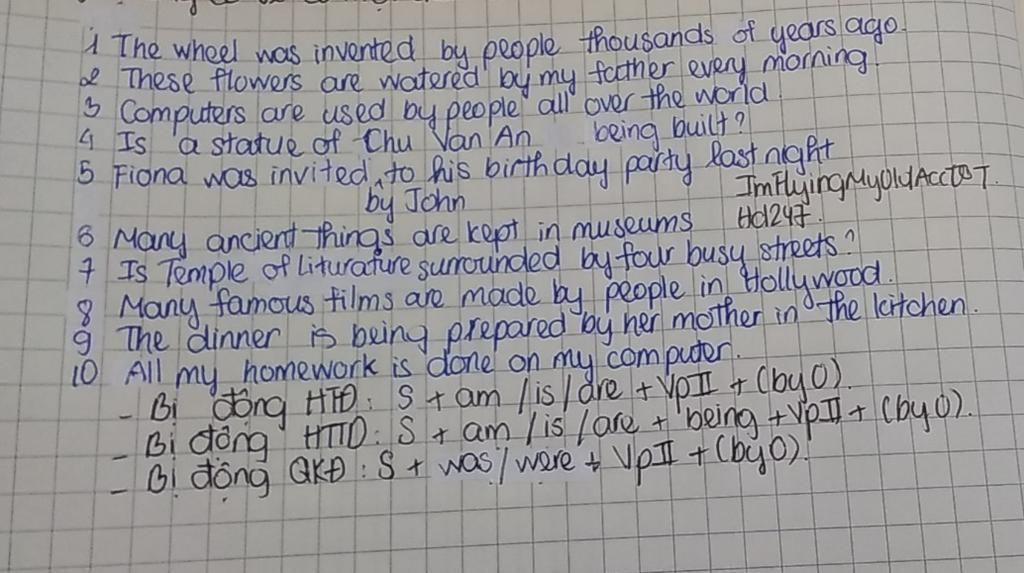 1 The wheel was invented by people thousands of years ago.
2 These flowers are watered by my father every morning.
3 Computers are used by people all over the world.
4 Is a statue of Chu Van An being built?
5 Fiona was invited ^ to his birthday party last night
by John
ImFlyingMyOldAcc
Hd247.
6 Many ancient things are kept in museums
7 Is Temple of liturature surrounded by four busy streets?
8 Many famous films are made by people in Hollywood.
9 The dinner is being prepared by her mother in the kitchen.
10 All my homework is done on my computer.
- Bị động HTĐ: S + am / is / are + VpII + (by O).
- Bị động HTTD: S + am / is / are + being + VpII + (by O).
- Bị động QKĐ: S + was / were + VpII + (by O).